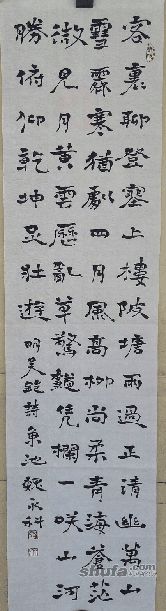 客裏聊登塞上樓陂塘雨過正清幽萬山
雪霽寒猶劇四月風高柳尚柔青海蒼茫
微見月黃雲歷亂草驚龝凭欄一咲山河
勝俯仰乾坤足壯遊 明吳詩池魏永科
shufa.com